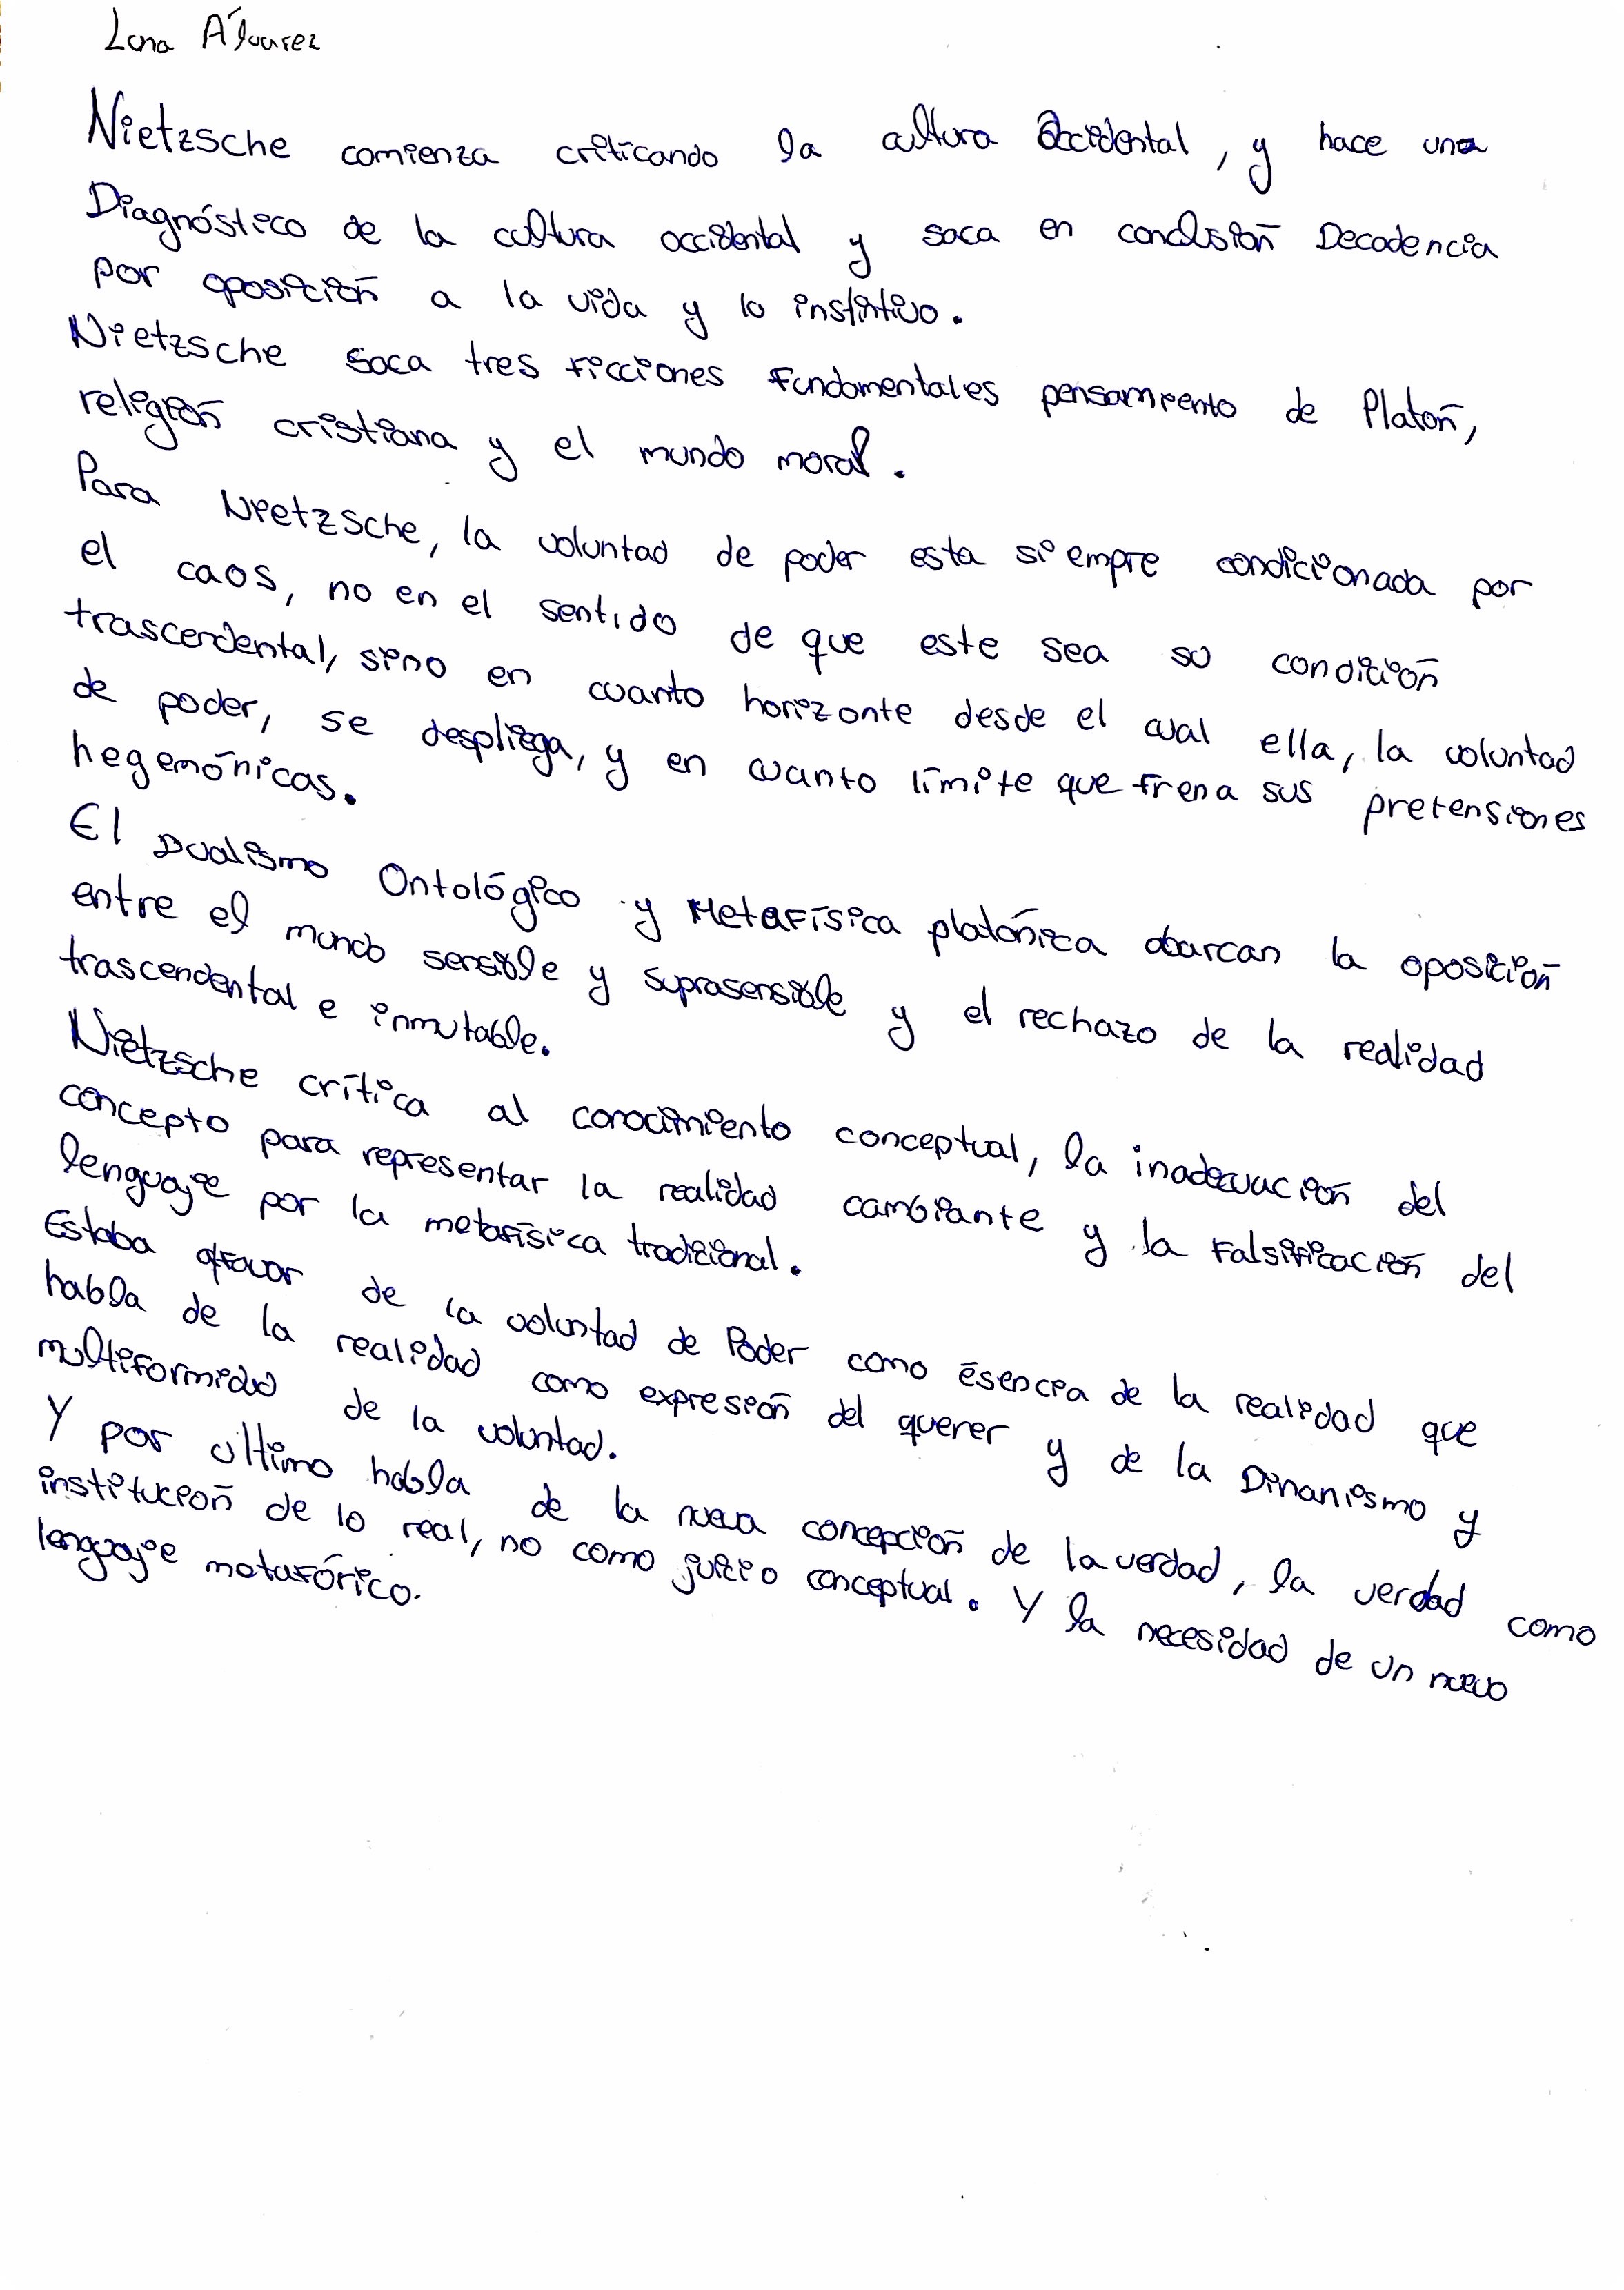 Lana Álvarez
Nietzsche comienza criticando la cultura Occidental, y hace una
Diagnóstico de la cultura occidental y saca en conclusión Decadencia
por oposición a la vida y lo instintivo.
Nietzsche saca tres ficciones fundamentales pensamiento de Platón,
religión cristiana y el mundo moral.
Para Nietzsche, la voluntad de poder esta siempre condicionada por
el caos, no en el sentido de que este sea su condición
trascendental, sino en cuanto horizonte desde el cual ella, la voluntad
de poder, se despliega, y en cuanto límite que frena sus pretensiones
hegemónicas.
El Dualismo Ontológico y Metafísica platónica abarcan la oposición
entre el mundo sensible y suprasensible y el rechazo de la realidad
trascendental e inmutable.
Nietzsche crítica al conocimiento conceptual, la inadecuación del
concepto para representar la realidad cambiante y la falsificación del
lenguaje por la metafísica tradicional.
Estaba afavor de la voluntad de Poder como ésencia de la realidad que
habla de la realidad como expresión del querer y de la Dinanismo y
multiformidad de la voluntad.
Y por ultimo habla de la nueva concepción de la verdad, la verdad como
institución de lo real, no como juicio conceptual. Y la necesidad de un nuevo
lenguaje metafórico.